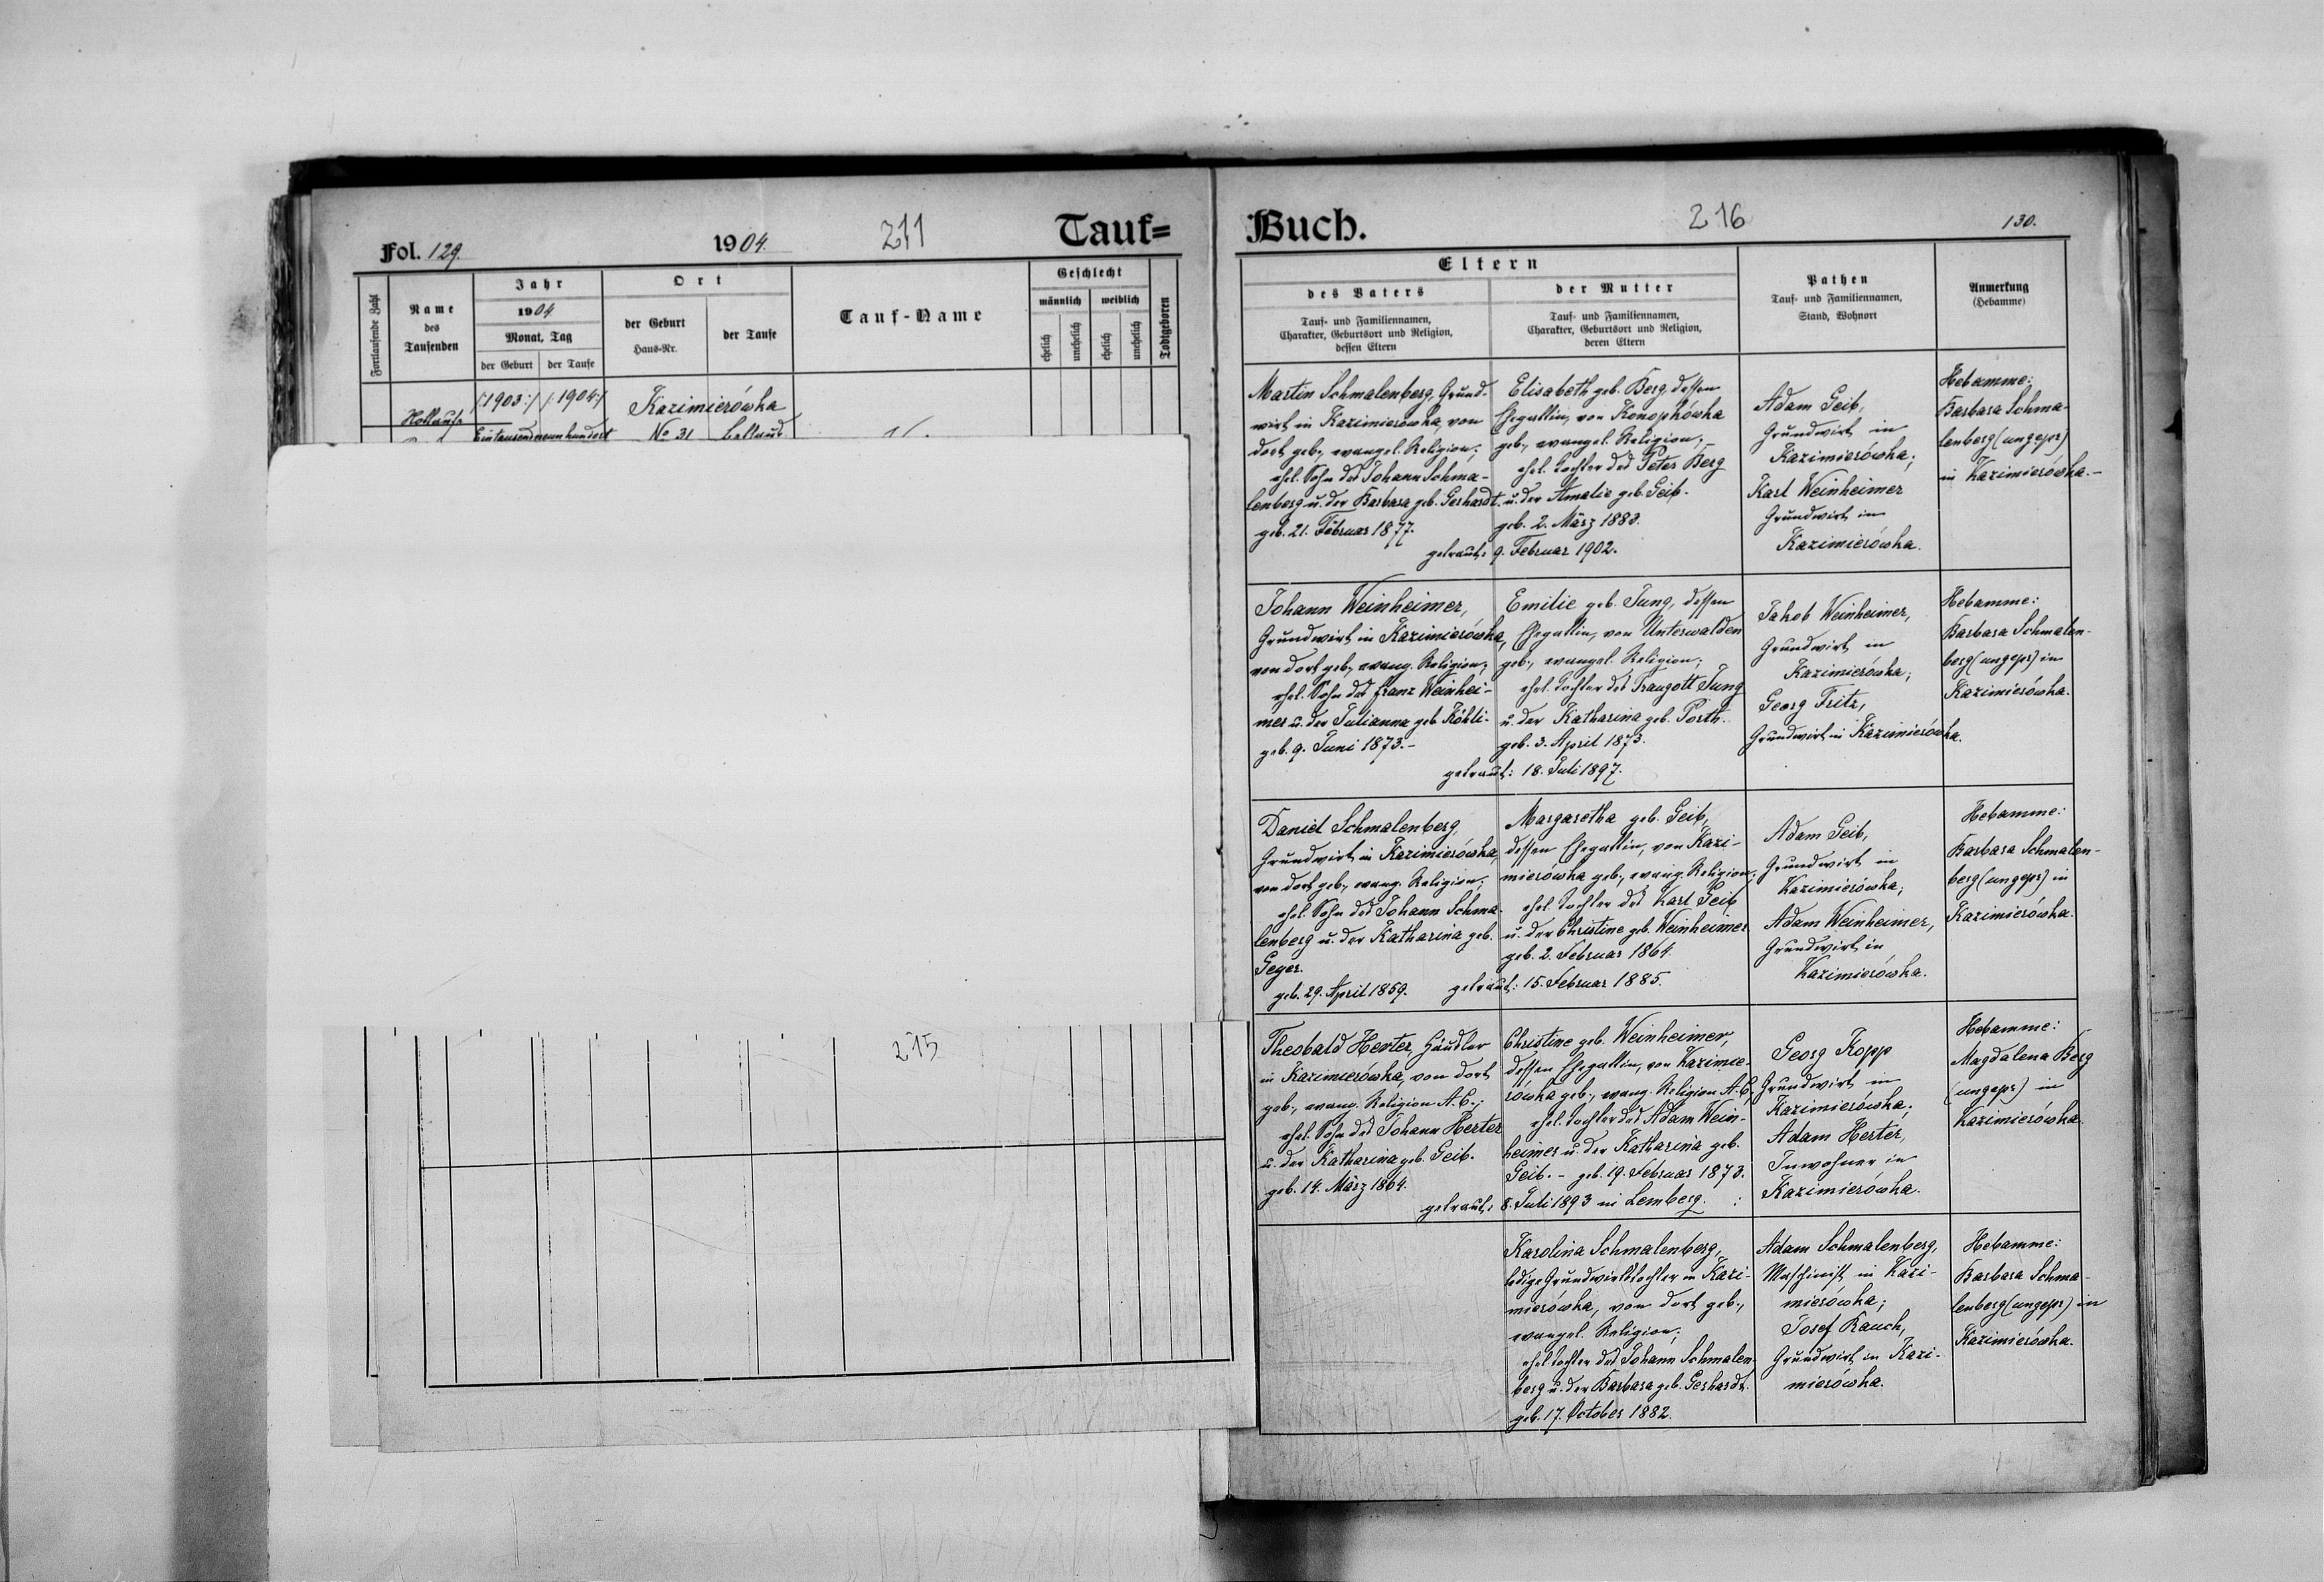 Fol. 129.
1904.
211
Tauf=
Fortlaufende Zahl
Name
des
Taufenden
Jahr
1904
Monat, Tag
der Geburt
der Taufe
Ort
der Geburt
Haus-Nr.
der Taufe
Tauf-Name
Geschlecht
männlich
weiblich
ehelich
unehelich
ehelich
unehelich
Todtgeboren
/:1903:/
/:1904:/
Kazimierówka
Eintausendneunhundert
No 31
215
Buch.
216
130.
Eltern
des Vaters
Tauf- und Familiennamen,
Charakter, Geburtsort und Religion,
dessen Eltern
der Mutter
Tauf- und Familiennamen,
Charakter, Geburtsort und Religion,
deren Eltern
Pathen
Tauf- und Familiennamen,
Stand, Wohnort
Anmerkung
(Hebamme)
Martin Schmalenberg, Grund-
wirt in Kazimierówka, von
dort geb., evangel. Religion;
ehel. Sohn des Johann Schma-
lenberg u. der Barbara geb. Gerhardt.
geb. 21. Februar 1877.
Elisabeth geb. Berg, dessen
Ehegattin, von Konophówka
geb., evangel. Religion;
ehel. Tochter des Peter Berg
u. der Amalie geb. Geib.
geb. 2. März 1883.
getraut: 9. Februar 1902.
Adam Geib,
Grundwirt in
Kazimierówka;
Karl Weinheimer
Grundwirt in
Kazimierówka.
Hebamme:
Barbara Schma-
lenberg (ungepr)
in Kazimierówka.-
Johann Weinheimer,
Grundwirt in Kazimierówka,
von dort geb., evang. Religion;
ehel. Sohn des Franz Weinhei-
mer u. der Julianna geb. Köhli.
geb. 9. Juni 1873.-
Emilie geb. Jung, dessen
Ehegattin, von Unterwalden
geb., evangel. Religion;
ehel. Tochter des Traugott Jung
u. der Katharina geb. Porth.
geb. 3. April 1873.
getraut: 18. Juli 1897.
Jakob Weinheimer,
Grundwirt in
Kazimierówka;
Georg Fritz,
Grundwirt in Kazimierówka.
Hebamme:
Barbara Schmalen-
berg (ungepr) in
Kazimierówka.
Daniel Schmalenberg,
Grundwirt in Kazimierówka,
von dort geb., evang. Religion;
ehel. Sohn des Johann Schma-
lenberg u. der Katharina geb.
Geyer.
geb. 29. April 1859.
Margaretha geb. Geib,
dessen Ehegattin, von Kazi-
mierówka geb., evang. Religion;
ehel. Tochter des Karl Geib
u. der Christine geb. Weinheimer
geb. 2. Februar 1864.
getraut: 15. Februar 1885.
Adam Geib,
Grundwirt in
Kazimierówka;
Adam Weinheimer,
Grundwirt in
Kazimierówka.
Hebamme:
Barbara Schmalen-
berg (ungepr) in
Kazimierówka.
Theobald Herter, Häusler
in Kazimierówka, von dort
geb., evang. Religion A. C.;
ehel. Sohn des Johann Herter
u. der Katharina geb. Geib.
geb. 14. März 1864.
Christine geb. Weinheimer,
dessen Ehegattin, von Kazimie-
rówka geb., evang. Religion A. C;
ehel. Tochter des Adam Wein-
heimer u. der Katharina geb.
Geib. - geb. 19. Februar 1873.
getraut: 8. Juli 1893 in Lemberg.
Georg Kopp
Grundwirt in
Kazimierówka;
Adam Herter,
Inwohner in
Kazimierówka.
Hebamme:
Magdalena Berg
(ungepr) in
Kazimierówka.
Karolina Schmalenberg,
ledige Grundwirtstochter in Kazi-
mierówka, von dort geb.,
evangel. Religion;
ehel. Tochter des Johann Schmalen-
berg u. der Barbara geb. Gerhardt.
geb. 17. October 1882.
Adam Schmalenberg,
Maschinist in Kazi-
mierówka;
Josef Rauch,
Grundwirt in Kazi-
mierówka.
Hebamme:
Barbara Schma-
lenberg (ungepr) in
Kazimierówka.